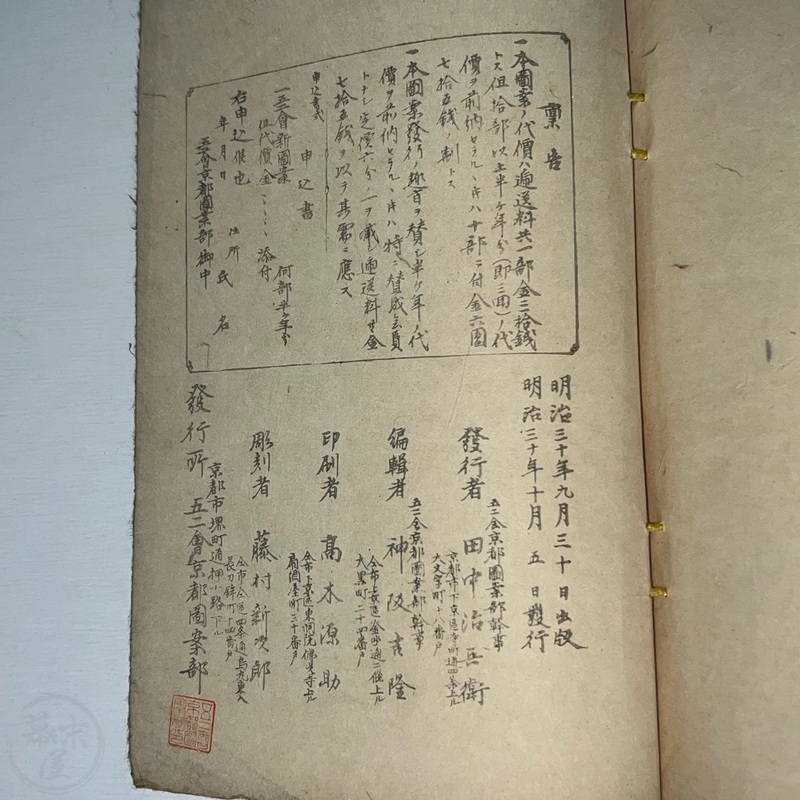 稟告
一本圖案ノ代價ハ逓送料共一部金三拾錢
トス但拾部以上半ケ年分(即三回)ノ代
價ヲ前納セラルヽ片ハ十部ニ付金六圓
七拾五錢ノ割トス
一本圖案發行ノ趣旨ヲ賛シ半ケ年ノ代
價ヲ前納セラルヽ片ハ特ニ賛成会員
トナシ定價六分ノ一ヲ減シ逓送料廿金
七拾五錢ヲ以テ其需ニ應ス
申込書式
申込書
一五二會新圖案 何部半ケ年分
但代價金〻〻〻添付
右申込候也
年月日 住所氏名
五二會京都圖案部御中
明治三十年九月三十日出版
明治三十年十月五日發行
五二会京都圖案部幹事
發行者 田中治兵衛
京都市下京區寺町通四条上ル
大文字町十八番戸
五二会京都圖案部幹事
編輯者 神阪吉隆
仝市上京區金座通二條上ル
大黒町二十四番戸
印刷者 髙木源助
仝市下京區東洞院佛光寺上ル
扇酒屋町三十番戸
彫刻者 藤村新次郎
仝市仝區四条通烏丸東入
長刀鉾町十四番戸
京都市堺町通押小路下ル
發行所 五二會京都圖案部
幕末屋